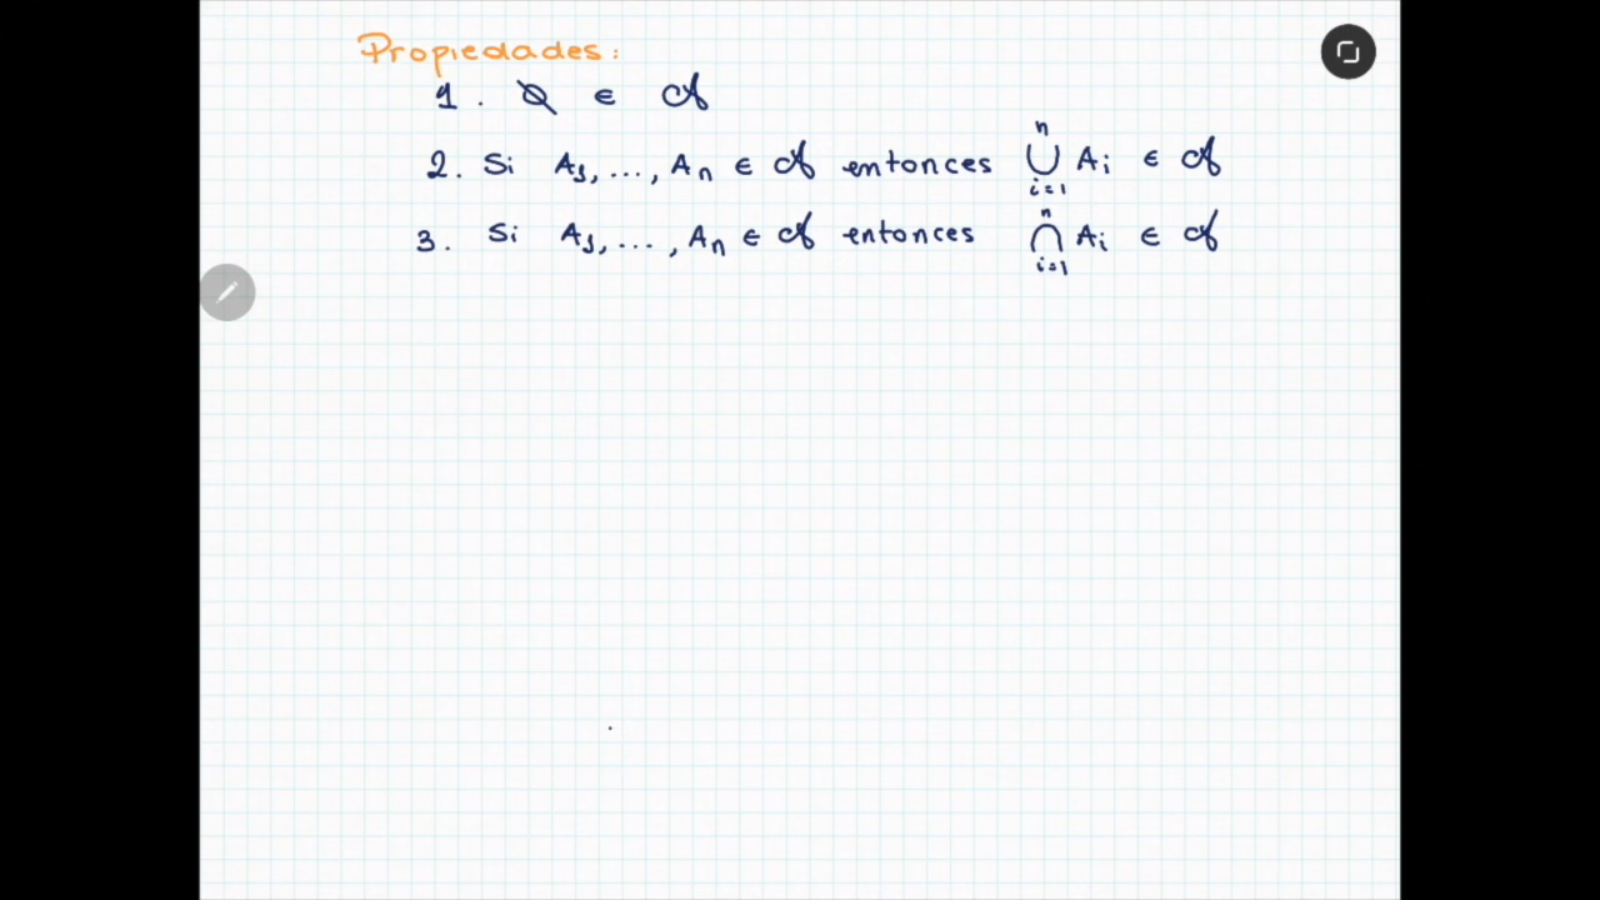 Propiedades:
1. ∅ ∈ 𝒜
2. Si A₁, ..., Aₙ ∈ 𝒜 entonces ⋃ⁿᵢ₌₁ Aᵢ ∈ 𝒜
3. Si A₁, ..., Aₙ ∈ 𝒜 entonces ⋂ⁿᵢ₌₁ Aᵢ ∈ 𝒜